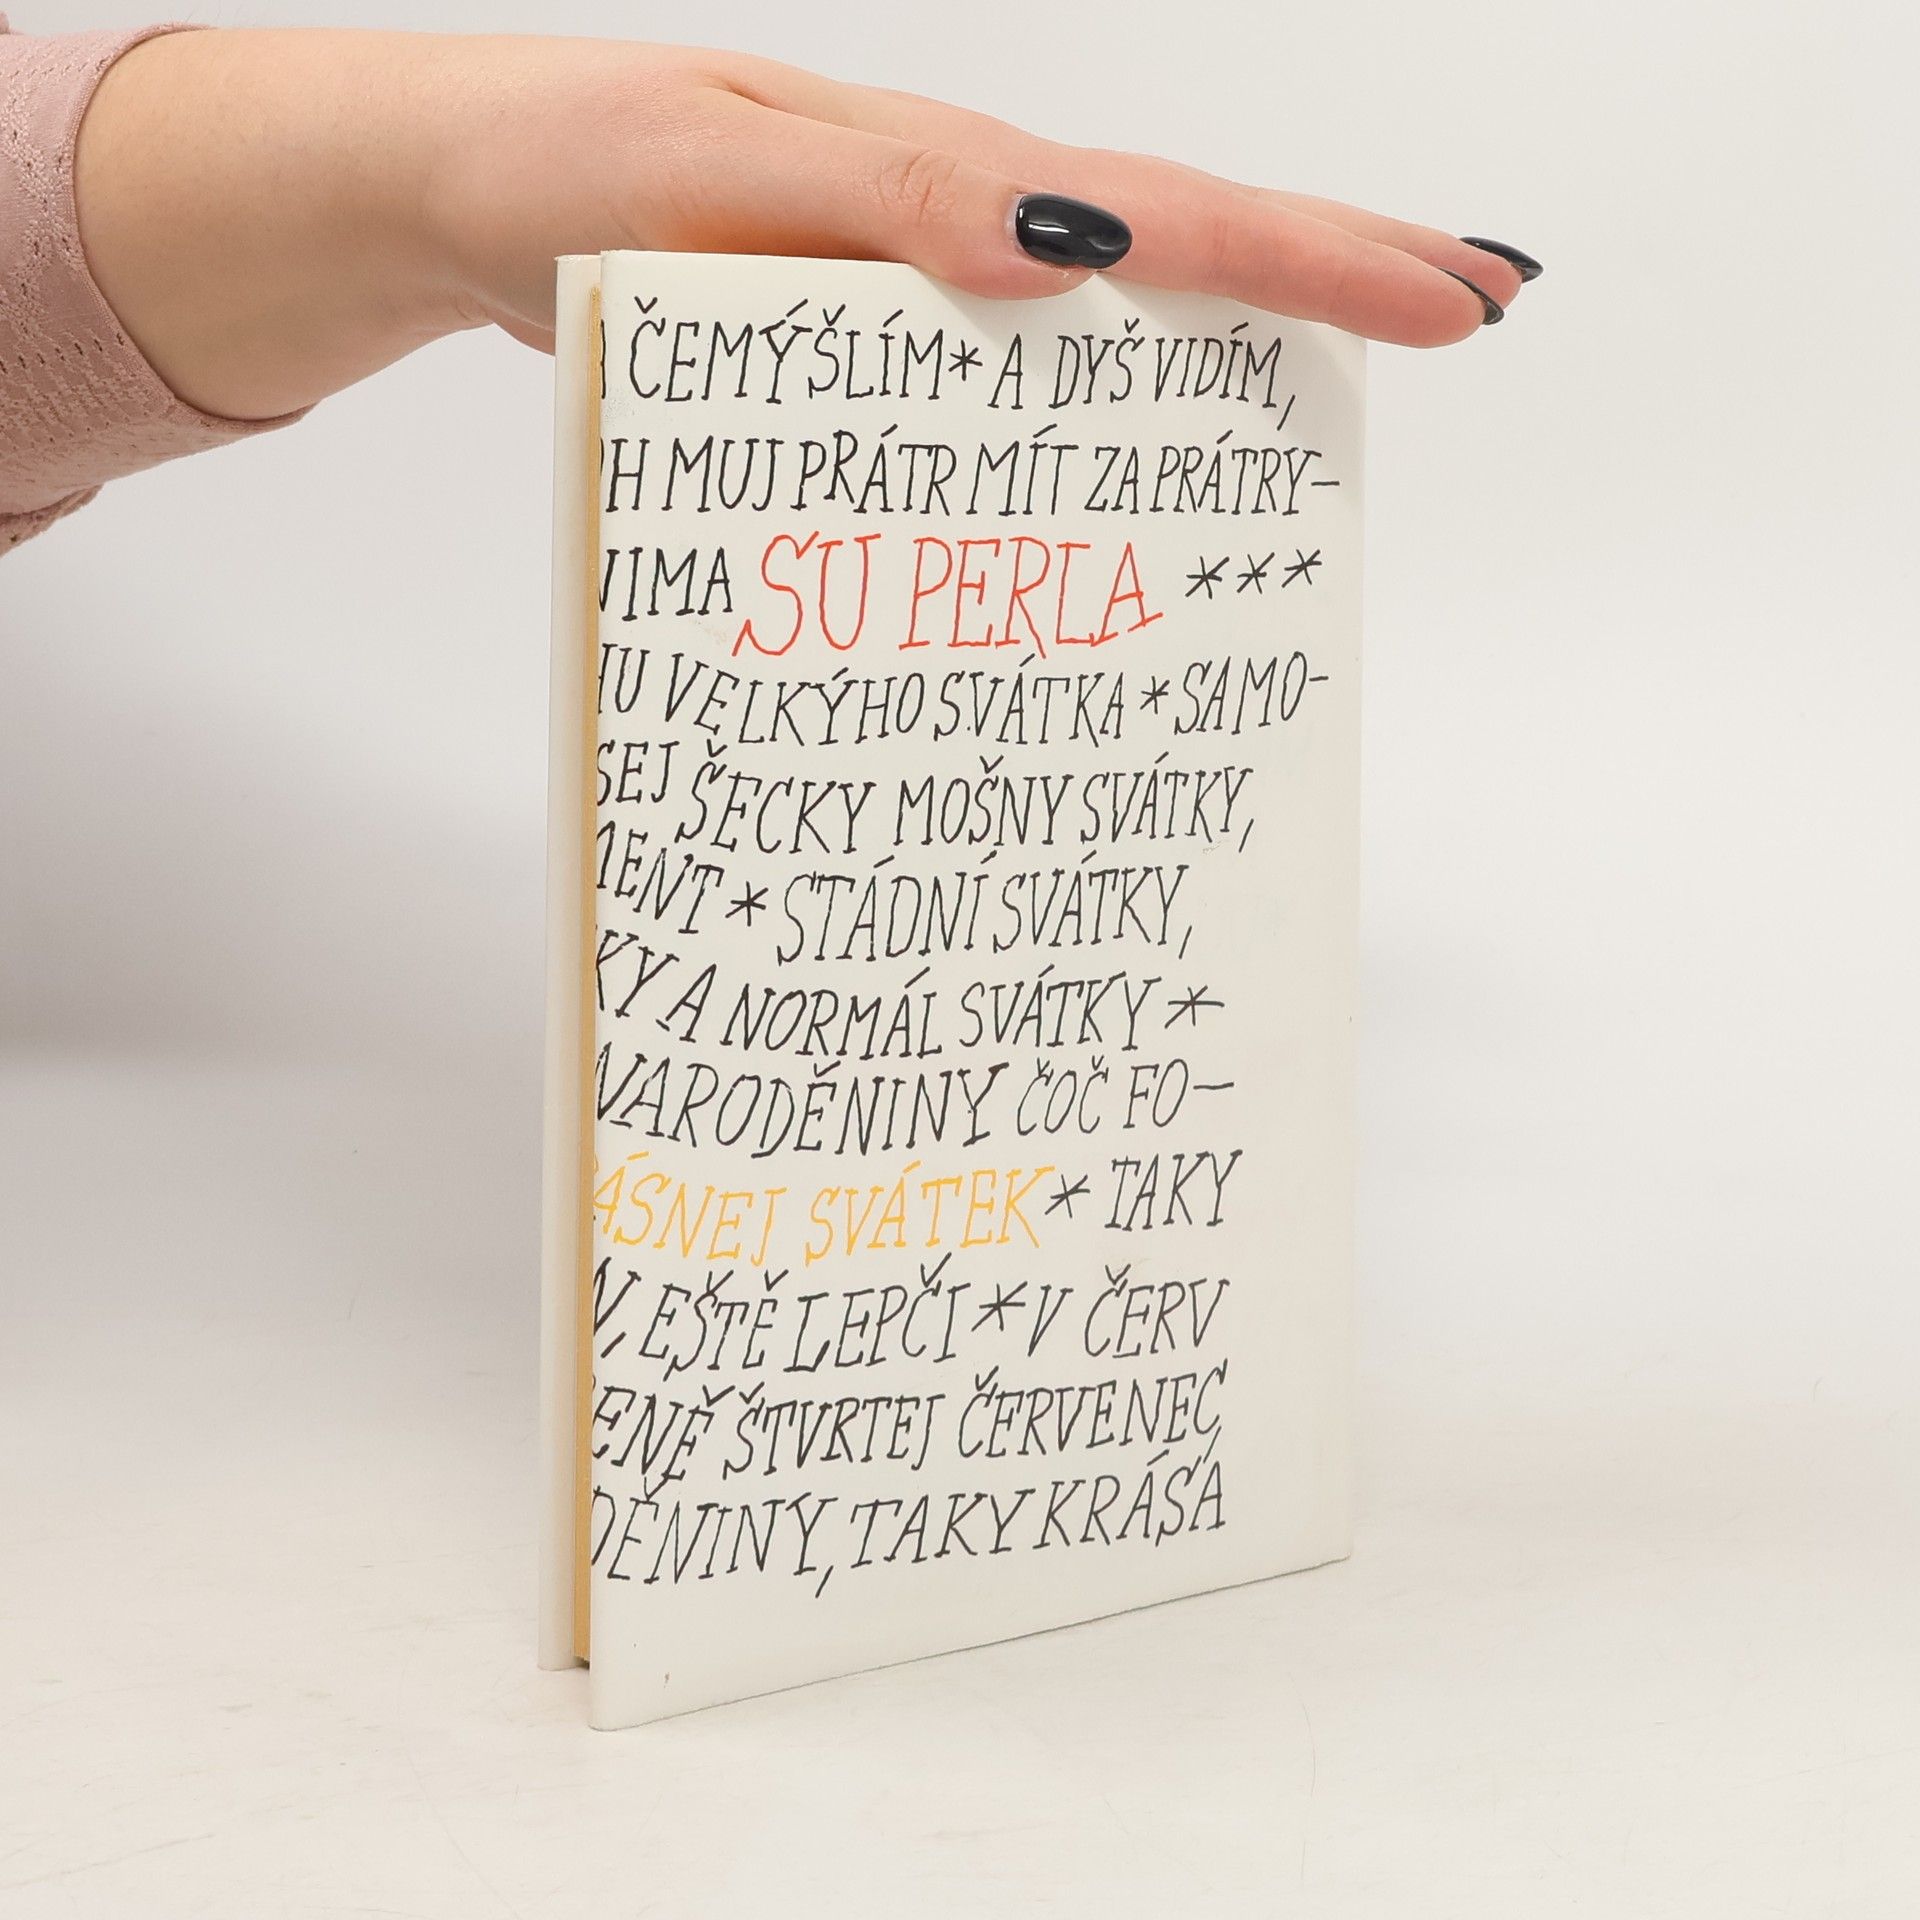 ČEMÝŠLÍM * A DYŠ VIDÍM,
H MUJ PRÁTR MÍT ZA PRÁTRY-
IMA SU PERLA ***
U VELKÝHO SVÁTKA * SAMO-
SEJ ŠECKY MOŠNY SVÁTKY,
MENT * STÁDNÍ SVÁTKY,
KY A NORMÁL SVÁTKY *
NARODĚNINY ČOČ FO-
ÁSNEJ SVÁTEK * TAKY
N, EŠTĚ LEPČI * V ČERV
ENĚ ŠTVRTEJ ČERVENEC,
DĚNINY, TAKY KRÁSÁ